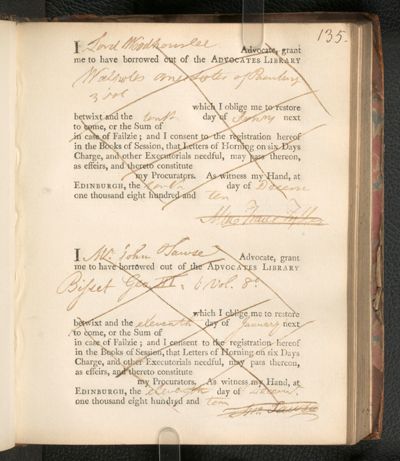 135.
I Lord Woodhouselee Advocate, grant
me to have borrowed out of the ADVOCATES LIBRARY
Walpoles anecdotes of Painting
3 vol
which I oblige me to restore
betwixt and the tenth day of Janry next
to come, or the Sum of
in case of Failzie; and I consent to the registration hereof
in the Books of Session, that Letters of Horning on six Days
Charge, and other Executorials needful, may pass thereon,
as effeirs, and thereto constitute
my Procurators. As witness my Hand, at
EDINBURGH, the tenth day of Decem
one thousand eight hundred and ten
I Mr. John Tawse Advocate, grant
me to have borrowed out of the ADVOCATES LIBRARY
Bisset Geo III. 6 Vol. 8o
which I oblige me to restore
betwixt and the eleventh day of January next
to come, or the Sum of
in case of Failzie; and I consent to the registration hereof
in the Books of Session, that Letters of Horning on six Days
Charge, and other Executorials needful, may pass thereon,
as effeirs, and thereto constitute
my Procurators. As witness my Hand, at
EDINBURGH, the eleventh day of Decemr.
one thousand eight hundred and ten
Tawse